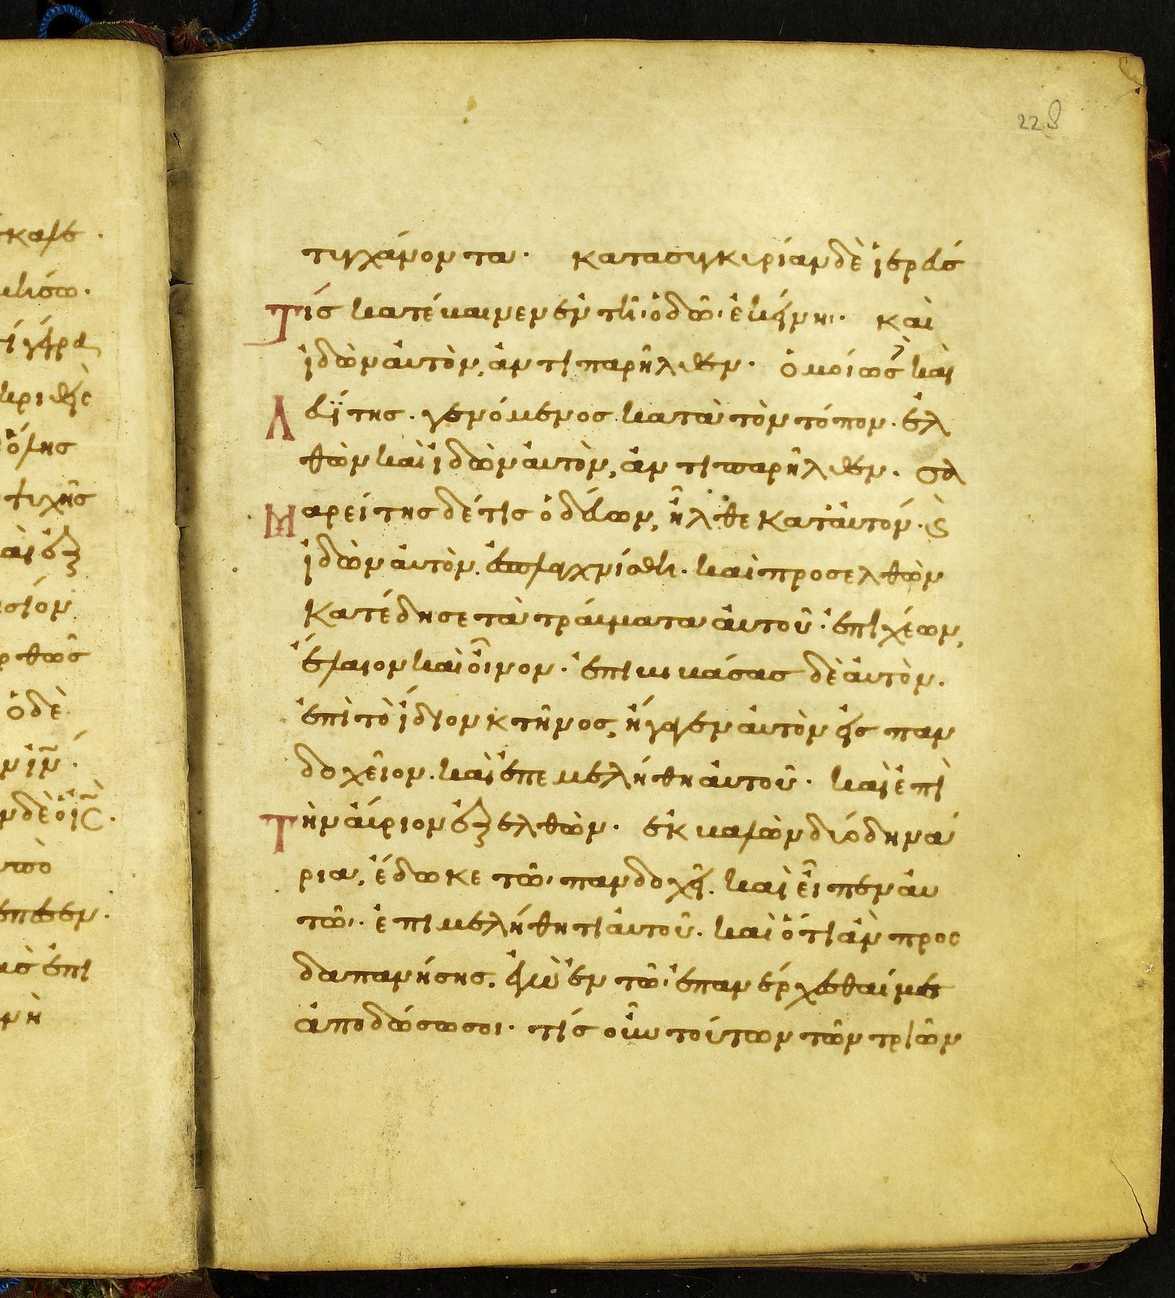 228
τυγχάνοντα. κατασυγκυρίαν δὲ ἱερεύς
τίς κατέβαινεν ἐν τῆ ὁδῶ ἐκείνη. καὶ
ἰδὼν ἀυτὸν, ἀντιπαρῆλθεν. ὁμοίως καὶ
Λευΐτης. γενόμενος κατὰ τὸν τόπον. ἐλ
θὼν καὶ ἰδὼν ἀυτὸν, ἀντιπαρῆλθεν. σα
Μαρείτης δέ τις ὁδεύων, ἦλθε κατ' ἀυτόν. καὶ
ἰδὼν ἀυτὸν. ἐσπλαχνίσθη. καὶ προσελθὼν
κατέδησε τὰ τράυματα ἀυτοῦ. ἐπιχέων,
ἔλαιον καὶ οἶνον. ἐπιβιβάσας δὲ ἀυτὸν.
ἐπὶ τὸ ἴδιον κτῆνος, ἤγαγεν ἀυτὸν εἰς παν
δοχεῖον. καὶ ἐπεμελήθη ἀυτοῦ. καὶ ἐπὶ
Τὴν ἄυριον ἐξελθὼν. ἐκβαλὼν δύο δηνά
ρια, ἔδωκε τῶ πανδοχεῖ. καὶ εἶπεν ἀυ
τῶ. ἐπιμελήθητι ἀυτοῦ. καὶ ὅτι ἂν προς
δαπανήσης. ἐγὼ ἐν τῶ ἐπανέρχεσθαί με
ἀποδώσω σοι. τίς οὖν τούτων τῶν τριῶν